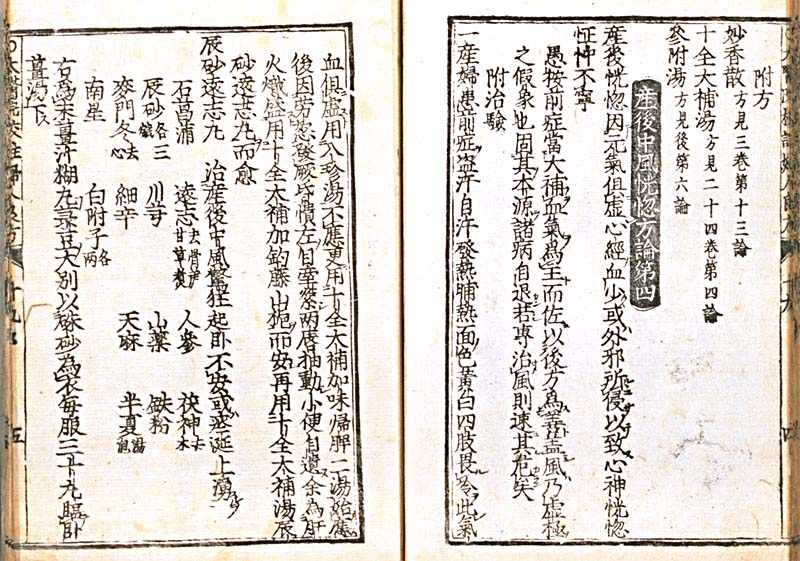 附方
妙香散 方見三卷第十三論
十全大補湯 方見二十四卷第四論
參附湯 方見後第六論
產後中風恍惚方論第四
產後恍惚因死氣俱虛心經血少或外邪所侵以致心神恍惚
怔忡不寧
愚按前症當大補血氣為主而佐以後方為善蓋風乃虛極
之假象也固其本源諸病自退若專治風則速其危矣
附治驗
一產婦患前症盜汗自汗發熱晡熱面色黃白四肢畏冷此氣
血俱虛用八珍湯不應更用十全大補加味歸脾二湯始應
後因勞怒發厥昏憒左目牽緊兩唇抽動小便自遺余為肝
火熾盛用十全大補加鉤藤山梔而安再用十全大補湯辰
砂遠志丸而愈
辰砂遠志丸 治產後中風驚狂起臥不安或痰涎上湧
石菖蒲 遠志去骨 甘草煮 人參 茯神去木
辰砂各三錢 川芎 山藥 鐵粉
麥門冬去心 細辛 天麻 半夏湯泡
南星 白附子各一兩
右為末薑汁糊丸菉豆大別以硃砂為衣每服三十丸臨臥
薑湯下
五